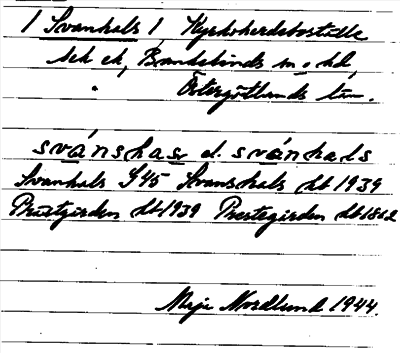 1 Svanhals 1 Kyrkoherdeboställe
sek ek, Brandstunds m o hd,
Östergötlands län.
svánshasv d. svánhals
Svanhals G45 Svanshals db 1939
Prästgården db 1939 Prestegården db 1862
Maja Nordlund 1944.